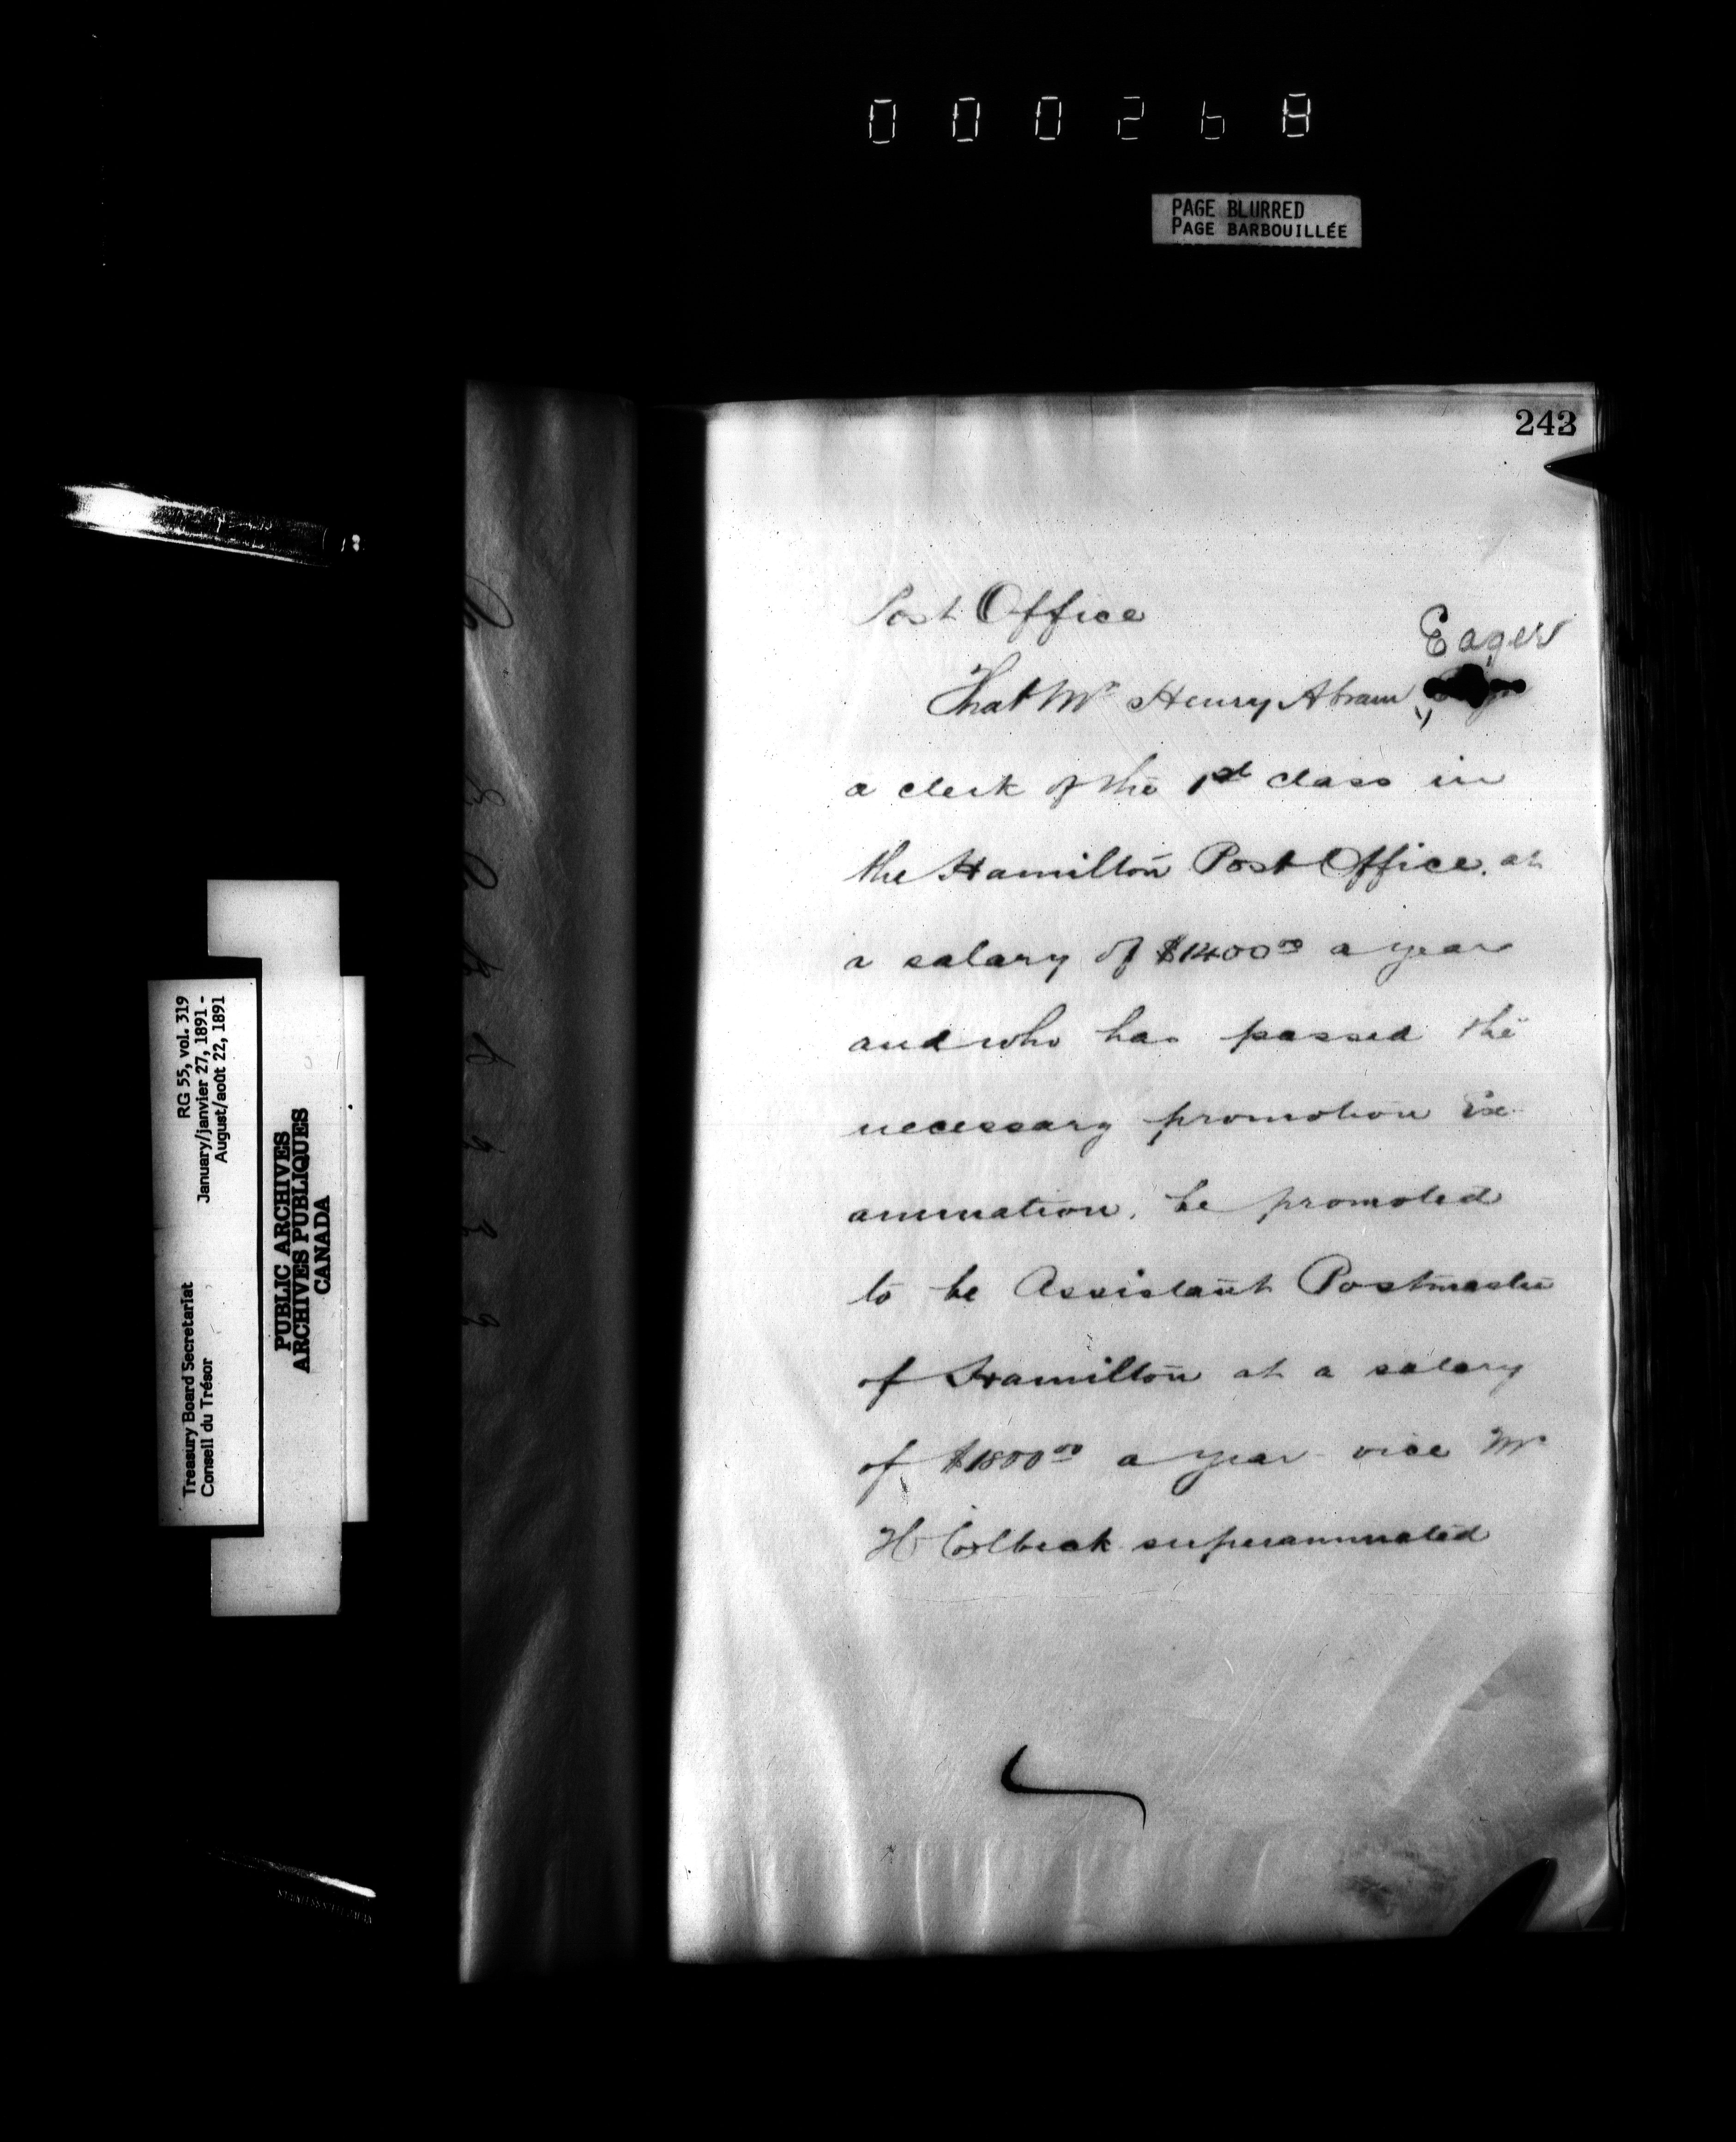 000268
PAGE BLURRED
PAGE BARBOUILLÉE
243
Post Office
Eager
That Mr Henry Abram
a clerk of the 1st class in
the Hamilton Post Office. at
a salary of $1400.00 a year
and who has passed the
necessary promotion Ex-
amination, be promoted
to be Assistant Postmaster
of Hamilton at a salary
of $1800.00 a year vice Mr
H Colbeck superannuated
Treasury Board Secretariat
Conseil du Trésor
RG 55, vol. 319
January/janvier 27, 1891 -
August/août 22, 1891
PUBLIC ARCHIVES
ARCHIVES PUBLIQUES
CANADA